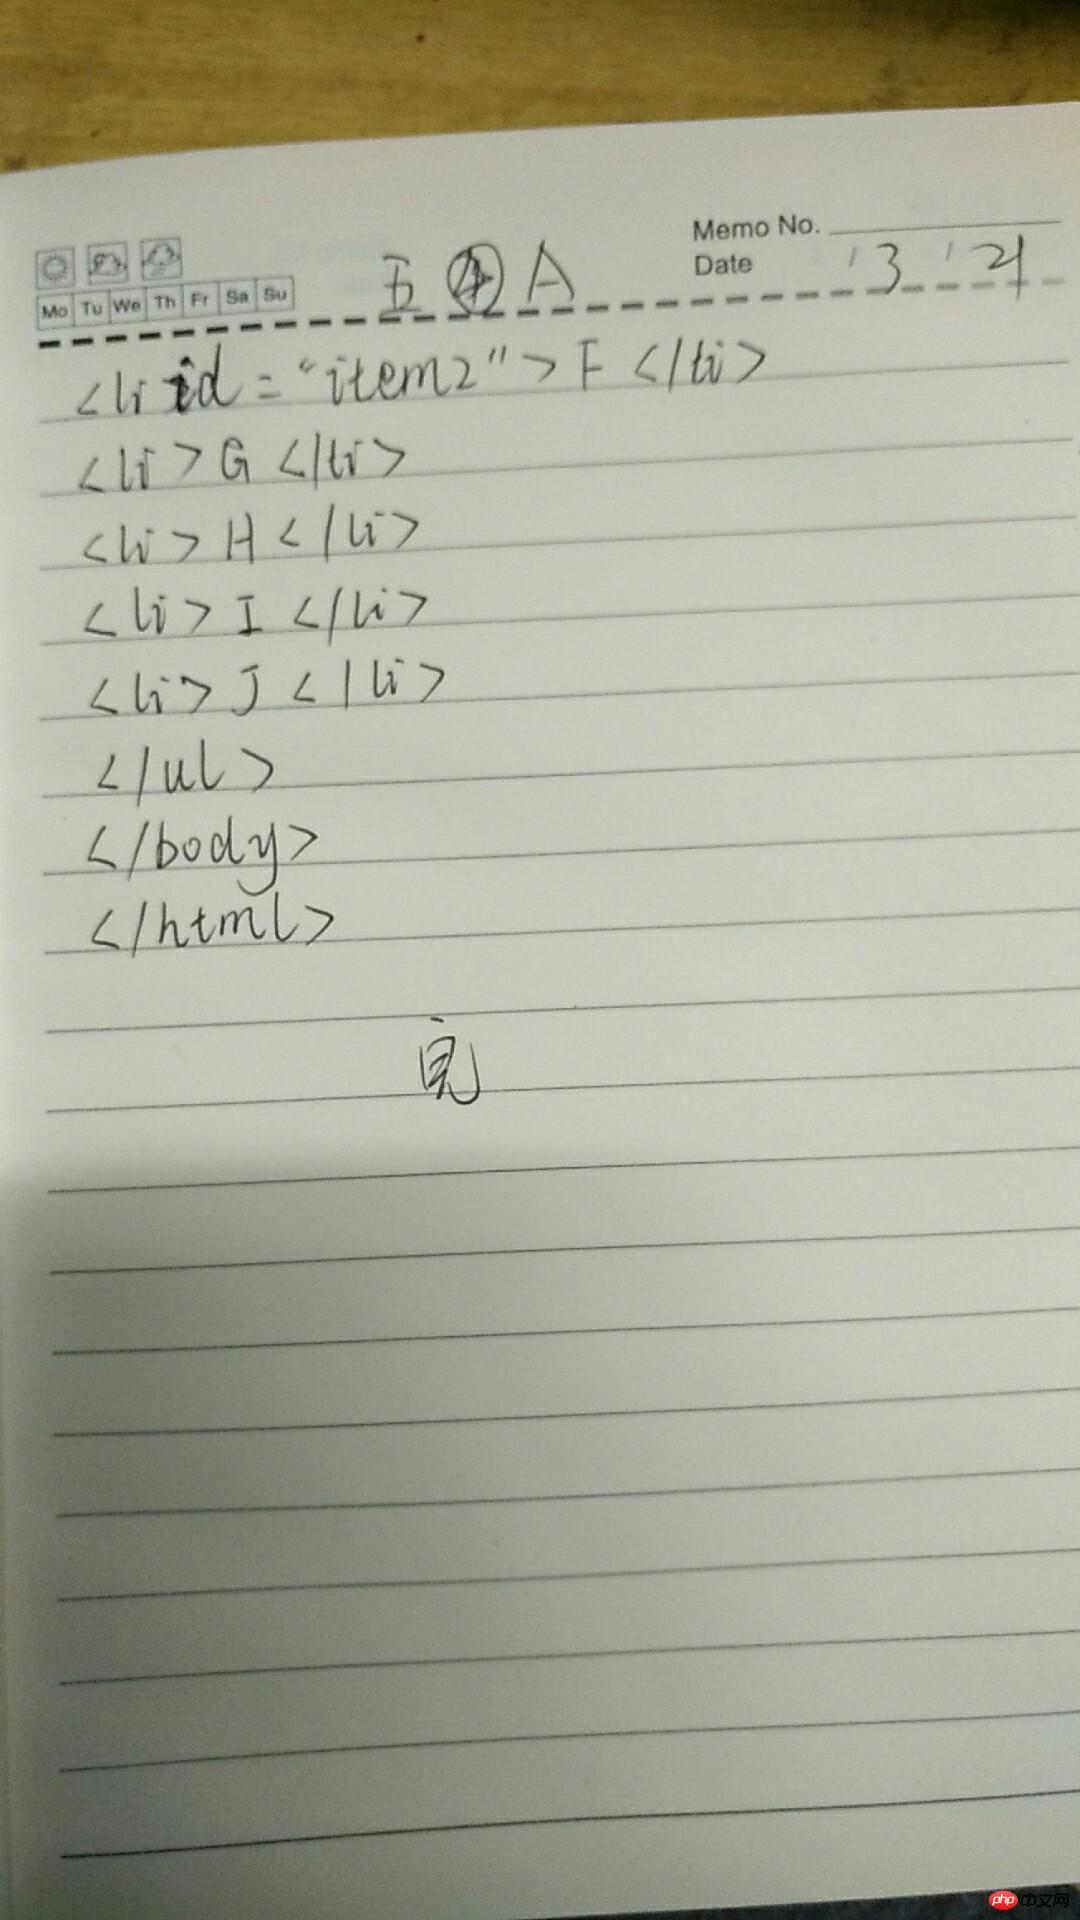 Memo No.
Date '3 '21
Mo Tu We Th Fr Sa Su
五 ④ A
<li id = "item2" > F </li>
<li> G </li>
<li> H </li>
<li> I </li>
<li> J </li>
</ul>
</body>
</html>
完
php 中文网